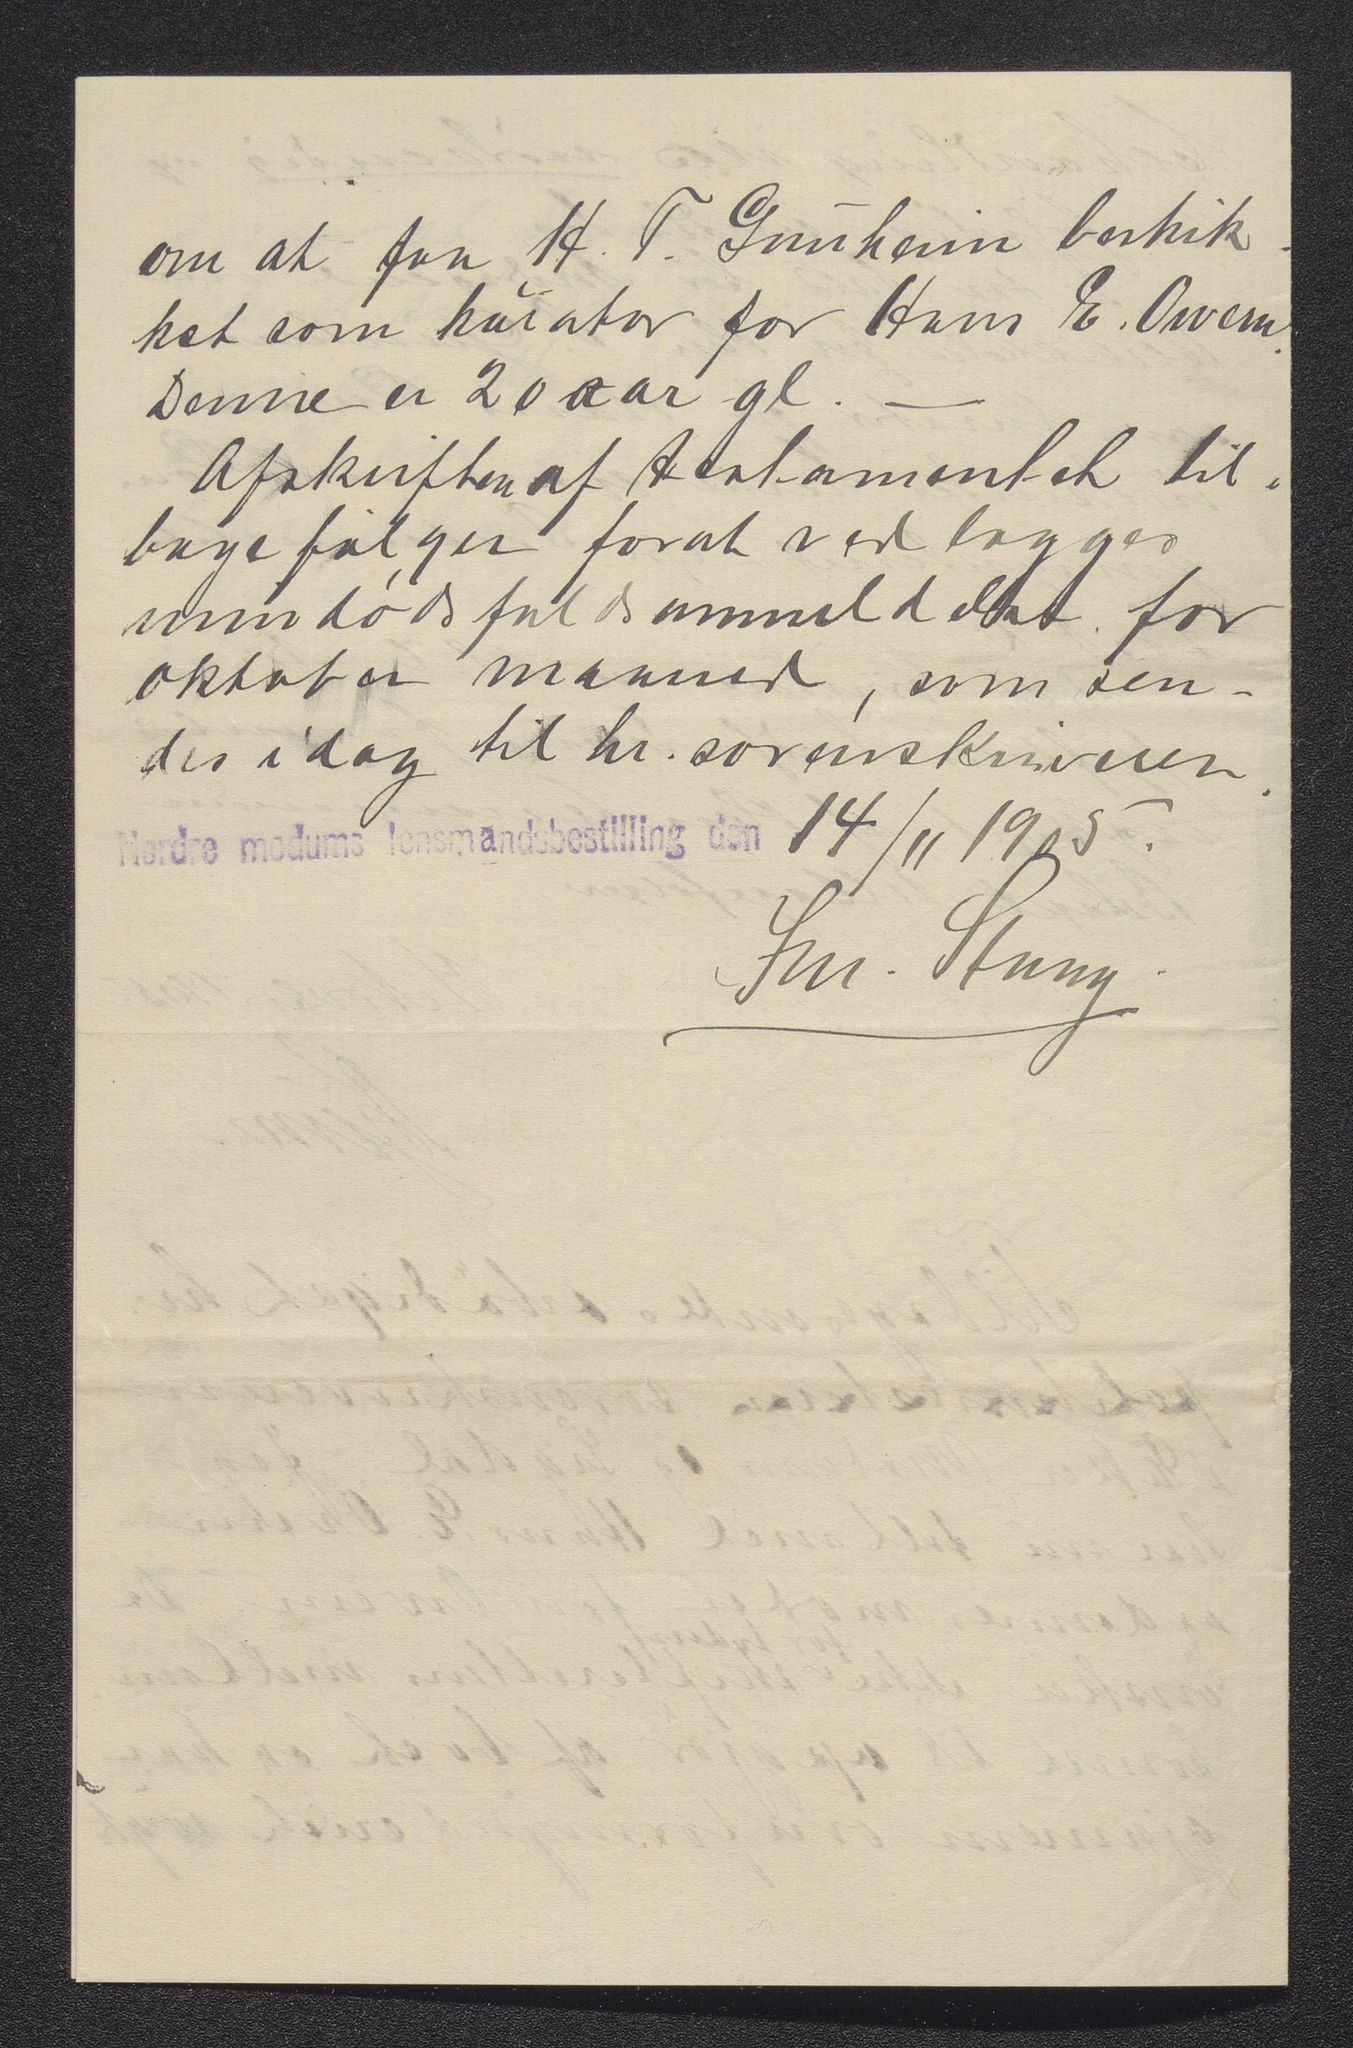 om at faa H. T. Gunheim beskik-
ket som kurator for Hans E. Owern.
Denne er 20 aar gl. —
Afskriften af testamentet til-
bagefølger forat vedlægges
min dødsfaldsanmeldelse for
oktober maaned, som sen-
des idag til hr. sorenskriveren.
Nordre modums lensmandsbestilling den 14/11 1905.
Stang.